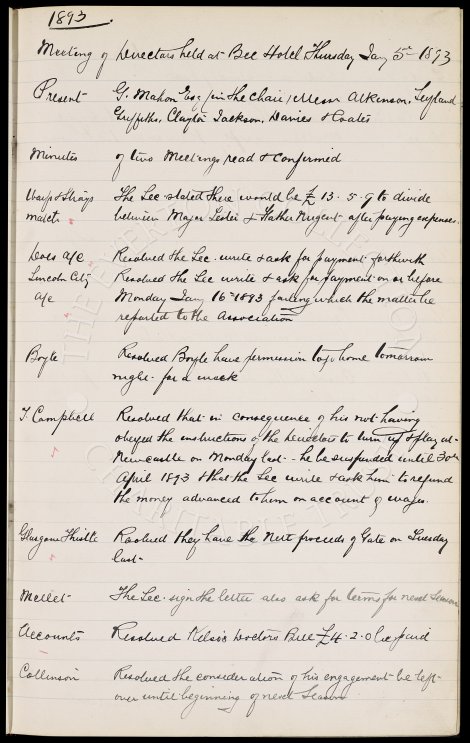 1893.
Meeting of Directors held at Bee Hotel Thursday Jany 5th 1893
Present
G. Mahon Esq (in the Chair) Messrs Atkinson, Leyland
Griffiths, Clayton Jackson, Davies & Coates
Minutes
of two Meetings read & confirmed
Waifs & Strays
match
The Sec. stated there would be £13.5.9 to divide
between Major Lester & Father Nugent after paying expenses.
a/c
Resolved the Sec. write & ask for payment forthwith
Lincoln City
a/c
Resolved the Sec write & ask for payment on or before
Monday Jany 16th 1893 failing which the matter be
reported to the Association
Boyle
Resolved Boyle have permission to go home tomorrow
night for a week
T. Campbell
Resolved that in consequence of his not having
obeyed the instructions of the Directors to turn up & play at
Newcastle on Monday last - he be suspended until 30th
April 1893 & that the Sec write & ask him to refund
the money advanced to him on account of wages.
Glasgow Thistle
Resolved they have the Nett proceeds of Gate on Tuesday
last
The Sec. sign the letter also ask for terms for next Season
Accounts
Resolved Kelso's Doctors Bill £4.2.0 be paid
Collinson
Resolved the consideration of his engagement be left
over until beginning of next Season